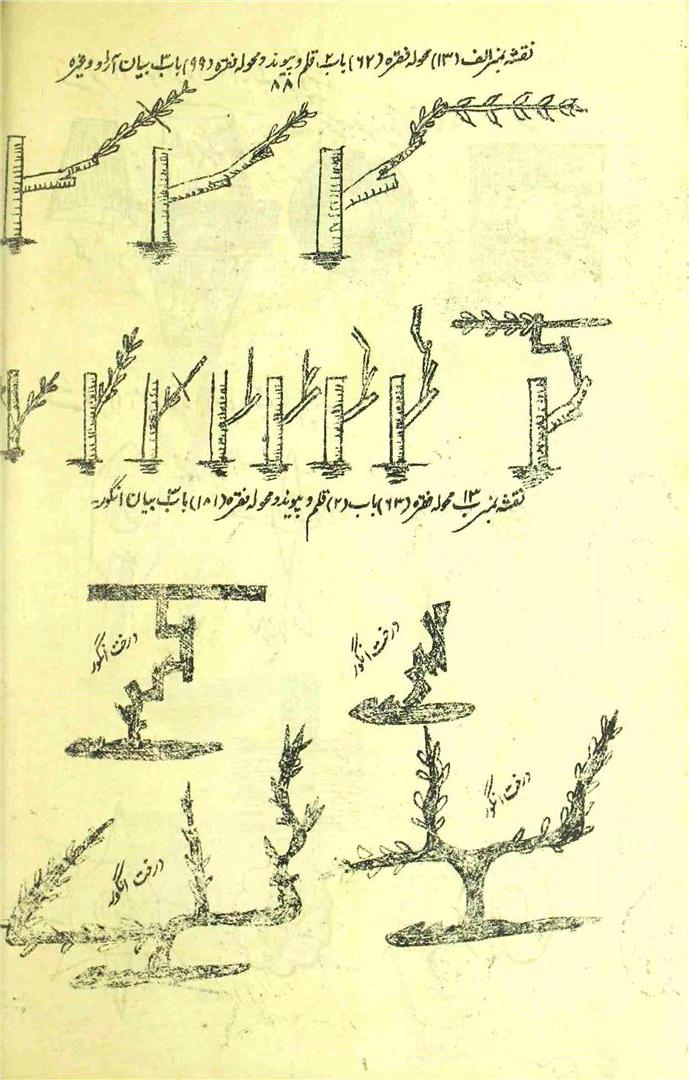 نقشہ نمبر الف (۱۳) محولہ فقرہ (۶۲) باب ۲ قلم و پیوند و محولہ فقرہ (۹۹) باب ۳ بیان آڑو وغیرہ
۸۸
نقشہ نمبر ۱۳ ب محولہ فقرہ (۶۳) باب (۲) قلم و پیوند و محولہ فقرہ (۱۸۱) باب ۳ بیان انگور۔
درخت انگور
درخت انگور
درخت انگور
درخت انگور